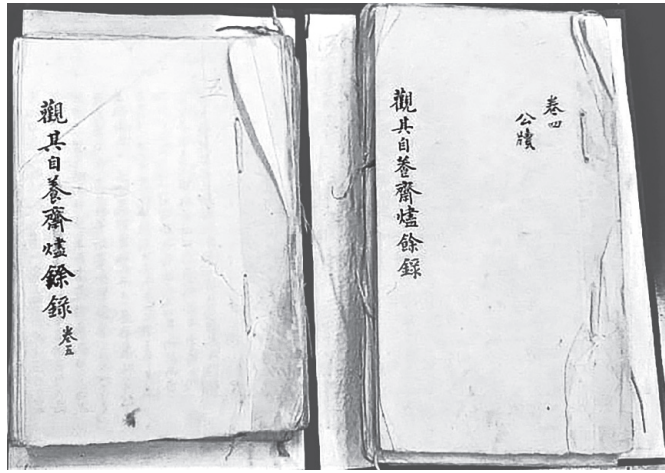 卷四
公牘
觀其自養齋燼餘錄
五
觀其自養齋燼餘錄
卷五